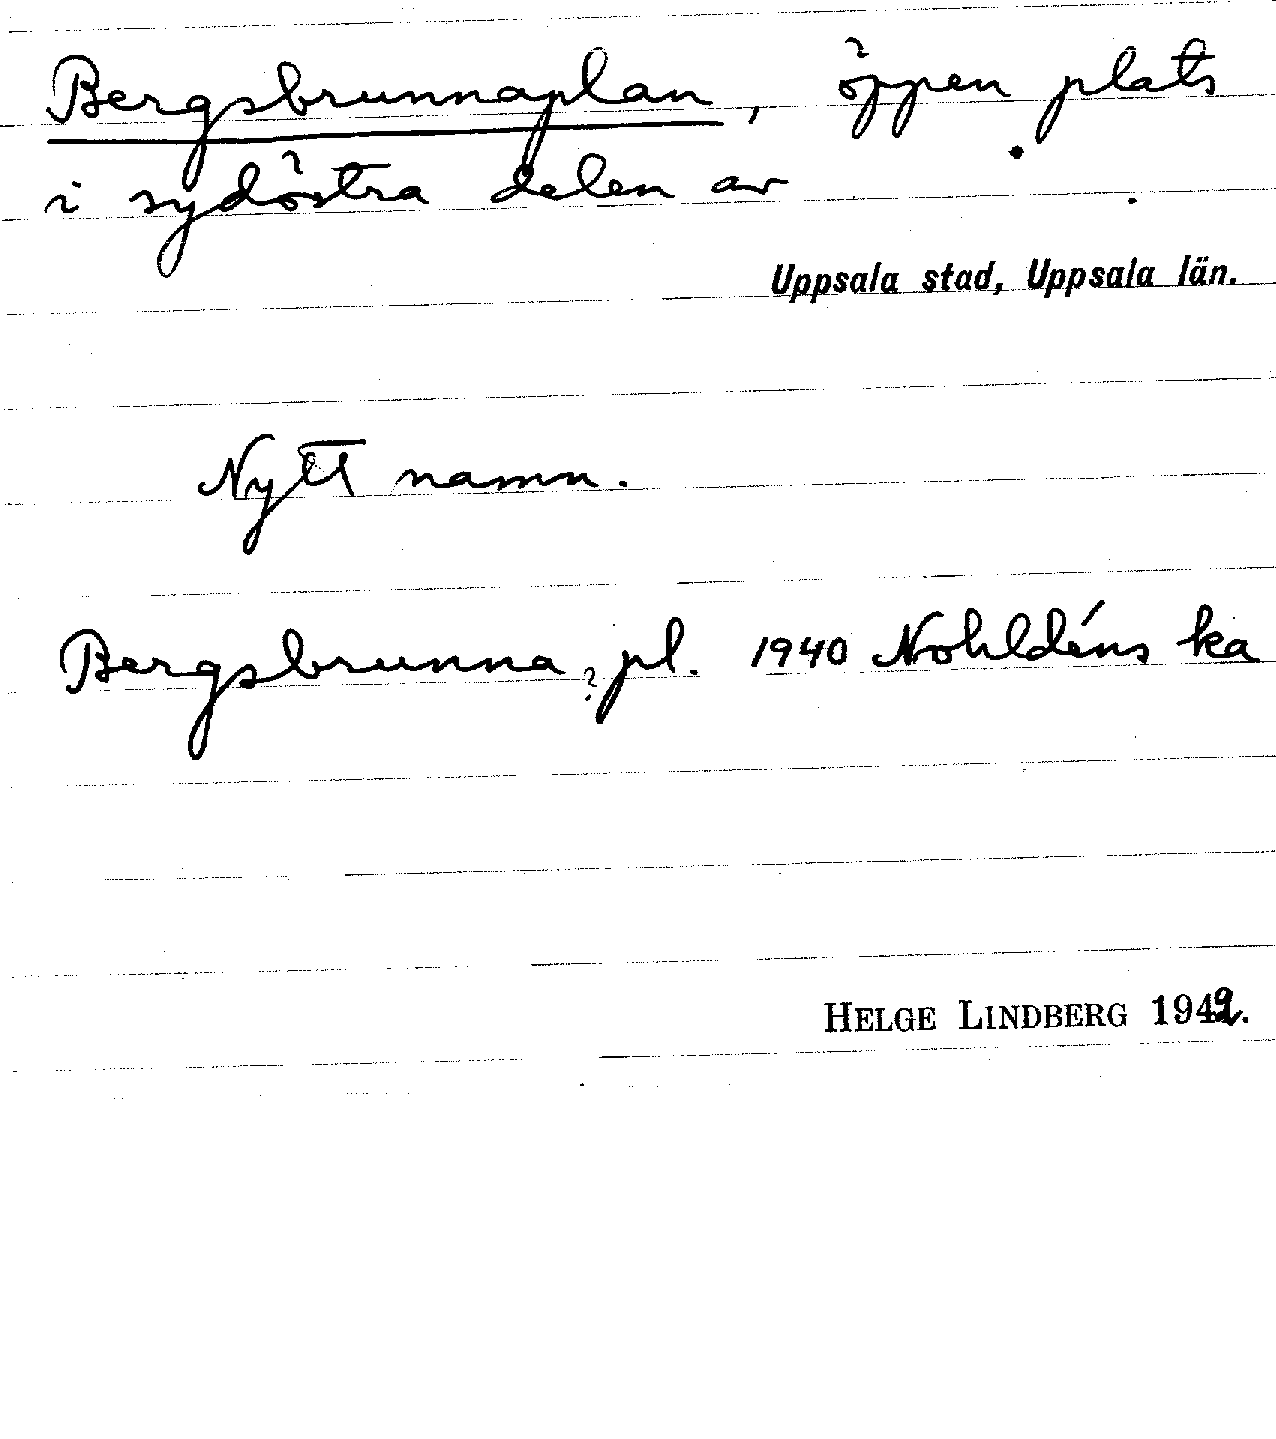 Bergsbrunnaplan, öppen plats
i sydöstra delen av
Uppsala stad, Uppsala län.
Nytt namn.
Bergsbrunna, pl. 1940 Nohldéns ka
HELGE LINDBERG 1942.